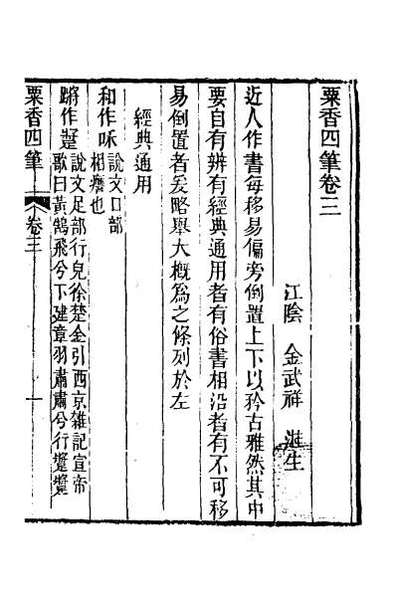 粟香四筆卷三
江陰　金武祥　溎生
近人作書每移易偏旁倒置上下以矜古雅然其中
要自有辨有經典通用者有俗書相沿者有不可移
易倒置者爰略舉大概爲之條列於左
經典通用
和作咊
說文口部
相應也
蹡作蹩
說文足部行皃徐楚金引西京雜記宣帝
歌曰黃鵠飛兮下建章羽肅肅兮行蹩蹩
粟香四筆　卷三　一